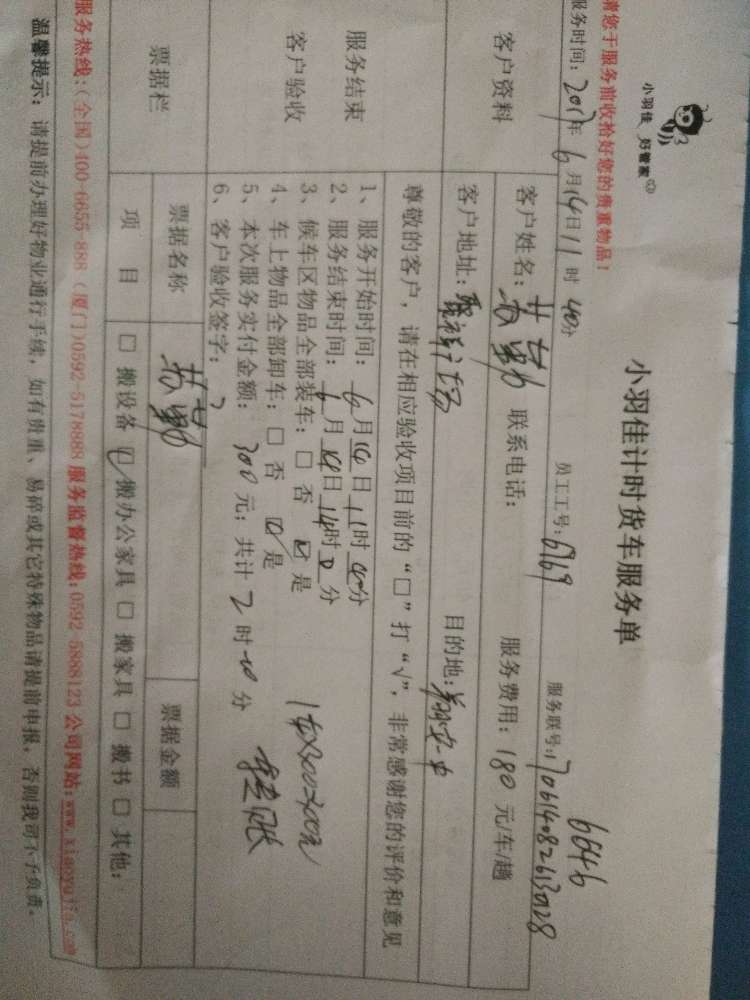 小羽佳 好管家
小羽佳计时货车服务单
6646
请您于服务前收拾好您的贵重物品!
服务时间: 2017年6月14日11时40分 员工工号: 6169 服务联号: 170614082613028
客户资料
客户姓名: 联系电话: 服务费用: 180 元/车/趟
客户地址: 目的地:
尊敬的客户，请在相应验收项目前的“□”打“√”，非常感谢您的评价和意见
服务结束
客户验收
1、服务开始时间: 6月14日11时40分
2、服务结束时间: 6月14日14时0分
3、候车区物品全部装车: □ 否 ☑ 是
4、车上物品全部卸车: □ 否 ☑ 是
5、本次服务实付金额: 300 元; 共计 2 时 20 分
6、客户验收签字:
1车X300=300元
转账
票据栏
票据名称 票据金额
项 目 □ 搬设备 ☑ 搬办公家具 □ 搬家具 □ 搬书 □ 其他:
服务热线:(全国)400-6655-888 (厦门)0592-5178888 服务监督热线:0592-5888123 公司网站:www.xiaoyujia.com
温馨提示: 请提前办理好物业通行手续，如有贵重、易碎或其它特殊物品请提前申报，否则我司不予负责。